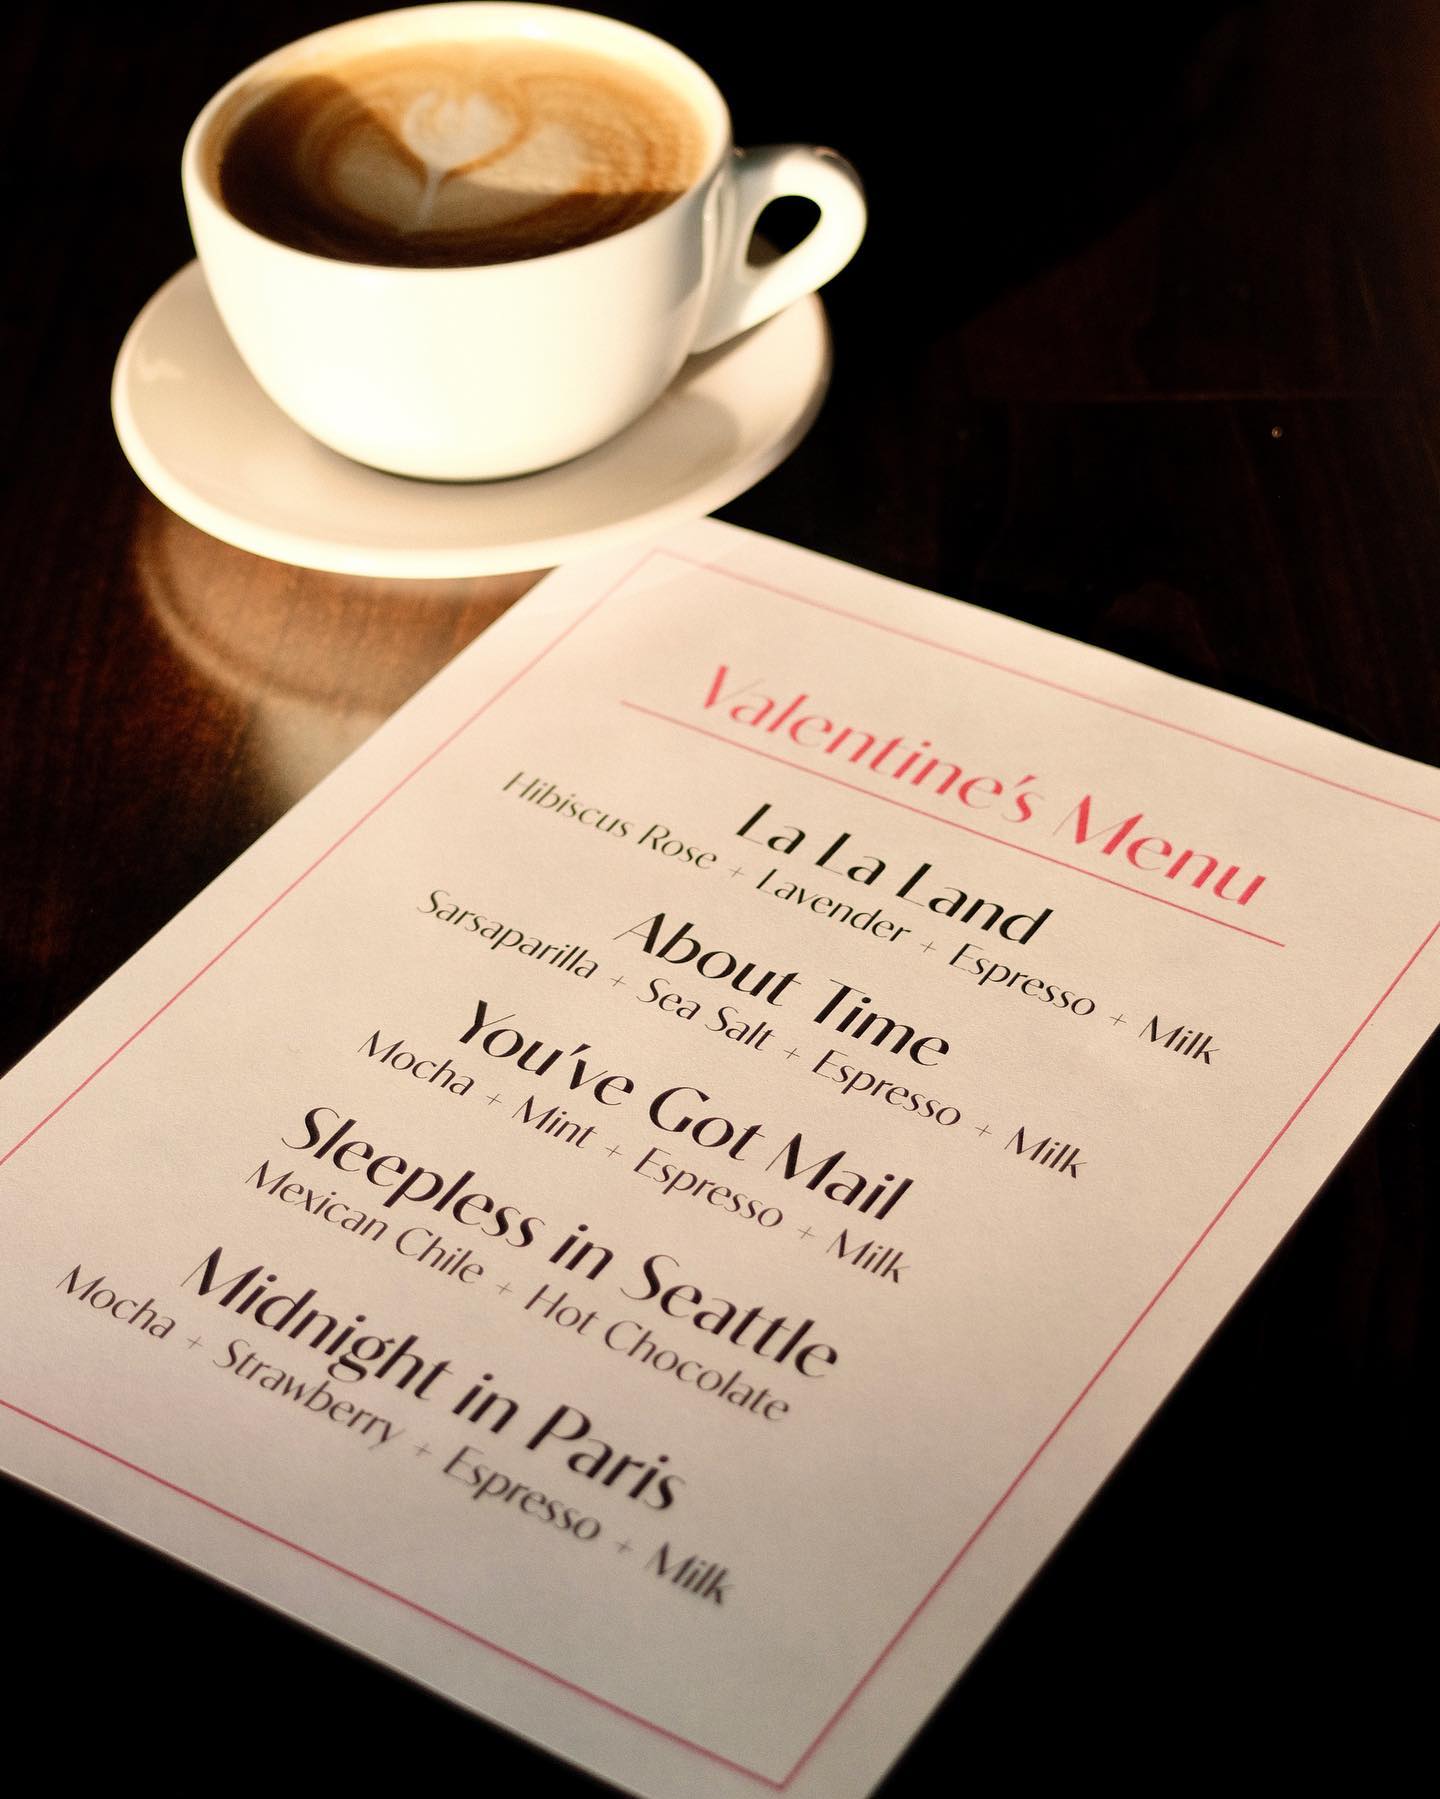 Valentine's Menu
La La Land
Hibiscus Rose + Lavender + Espresso + Milk
About Time
Sarsaparilla + Sea Salt + Espresso + Milk
You've Got Mail
Mocha + Mint + Espresso + Milk
Sleepless in Seattle
Mexican Chile + Hot Chocolate
Midnight in Paris
Mocha + Strawberry + Espresso + Milk